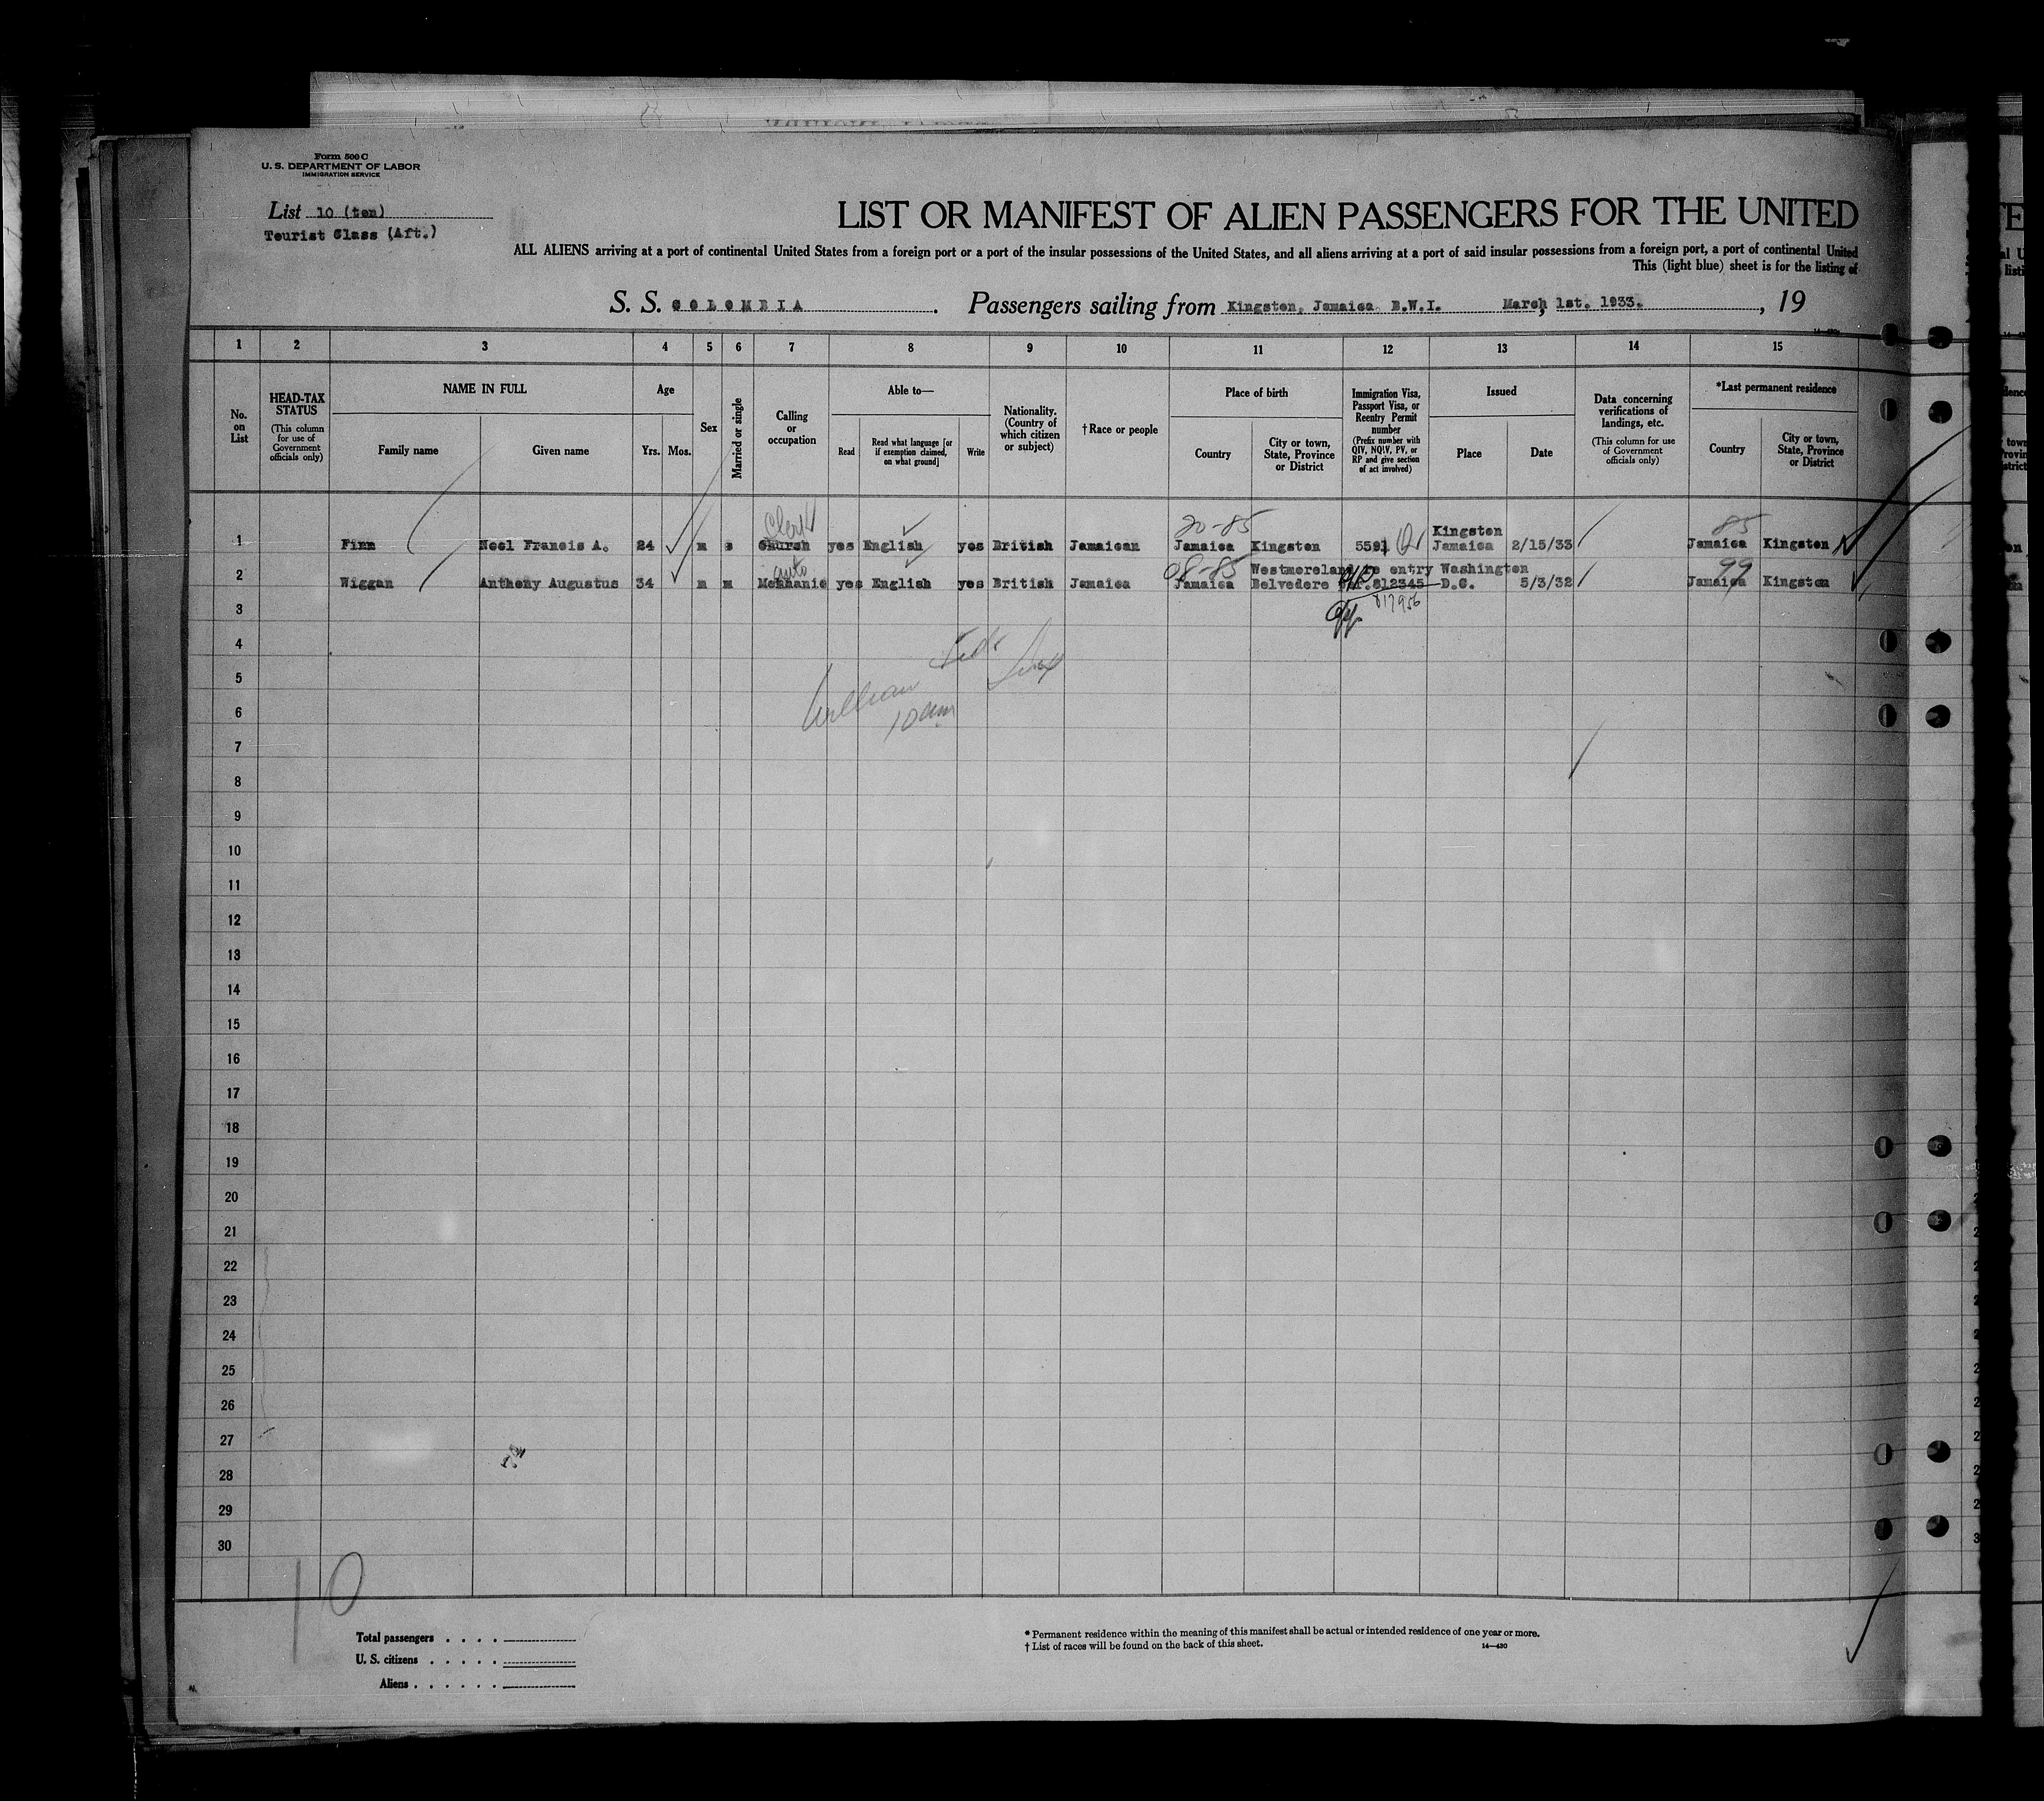 Form 500 C
U. S. DEPARTMENT OF LABOR
IMMIGRATION SERVICE
List 10 (ten)
Tourist Class (Aft.)
LIST OR MANIFEST OF ALIEN PASSENGERS FOR THE UNITED
ALL ALIENS arriving at a port of continental United States from a foreign port or a port of the insular possessions of the United States, and all aliens arriving at a port of said insular possessions from a foreign port, a port of continental United
This (light blue) sheet is for the listing of
S. S. COLOMBIA. Passengers sailing from Kingston, Jamaica B.W.I. March, 1st. 1933., 19
1 2 3 4 5 6 7 8 9 10 11 12 13 14 15
No. on List
HEAD-TAX STATUS (This column for use of Government officials only)
NAME IN FULL
Family name Given name
Age
Yrs. Mos.
Sex
Married or single
Calling or occupation
Able to—
Read Read what language [or if exemption claimed, on what ground] Write
Nationality. (Country of which citizen or subject)
†Race or people
Place of birth
Country City or town, State, Province or District
Immigration Visa, Passport Visa, or Reentry Permit number (Prefix number with QIV, NQIV, PV, or RP and give section of act involved)
Issued
Place Date
Data concerning verifications of landings, etc. (This column for use of Government officials only)
*Last permanent residence
Country City or town, State, Province or District
Clerk 20-85 Kingston 85
1 Finn Noel Francis A. 24 m s Church yes English yes British Jamaican Jamaica Kingston 5591 Jamaica 2/15/33 Jamaica Kingston
auto 08-85 Westmoreland re entry Washington 99
2 Wiggan Anthony Augustus 34 m m Mechanic yes English yes British Jamaica Jamaica Belvedere 812345 D.C. 5/3/32 Jamaica Kingston
817956
3
4
5
6
William
10 am
7
8
9
10
11
12
13
14
15
16
17
18
19
20
21
22
23
24
25
26
27
28
29
30
10
Total passengers
U. S. citizens
Aliens
* Permanent residence within the meaning of this manifest shall be actual or intended residence of one year or more.
† List of races will be found on the back of this sheet.
14—430